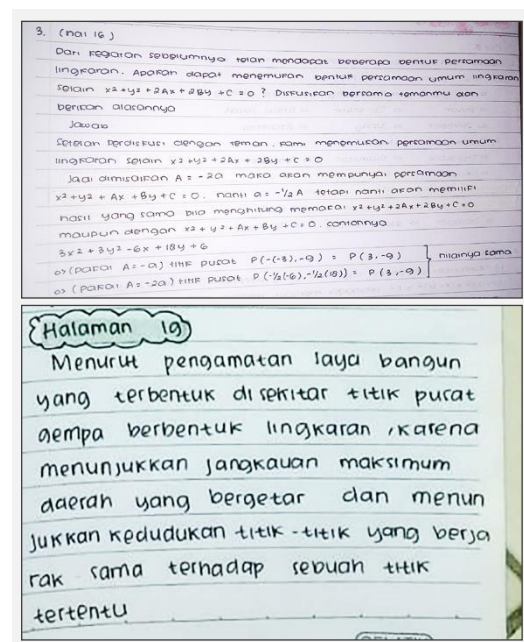 3. (hal 16)
Dari kegiatan sebelumnya telah mendapat beberapa bentuk persamaan
lingkaran. Apakah dapat menemukan bentuk persamaan umum lingkaran
selain x²+y²+2Ax+2By+C=0? Diskusikan bersama temanmu dan
berikan alasannya
Jawab
Setelah berdiskusi dengan teman, kami menemukan persamaan umum
lingkaran selain x²+y²+2Ax+2By+C=0
Jadi dimisalkan A = -2a maka akan mempunyai persamaan
x²+y²+Ax+By+C=0. nanti a=-½A tetapi nanti akan memiliki
hasil yang sama bila menghitung memakai x²+y²+2Ax+2By+C=0
maupun dengan x²+y²+Ax+By+C=0. contohnya
3x²+3y²-6x+18y+6
=> (pakai A=-a) titik pusat P(-(-3),-9) = P(3,-9)
=> (pakai A=-2a) titik pusat P(-½(-6),-½(18)) = P(3,-9) } nilainya sama
Halaman 19
Menurut pengamatan saya bangun
yang terbentuk di sekitar titik pusat
gempa berbentuk lingkaran, karena
menunjukkan jangkauan maksimum
daerah yang bergetar dan menun
jukkan kedudukan titik-titik yang berja
rak sama terhadap sebuah titik
tertentu